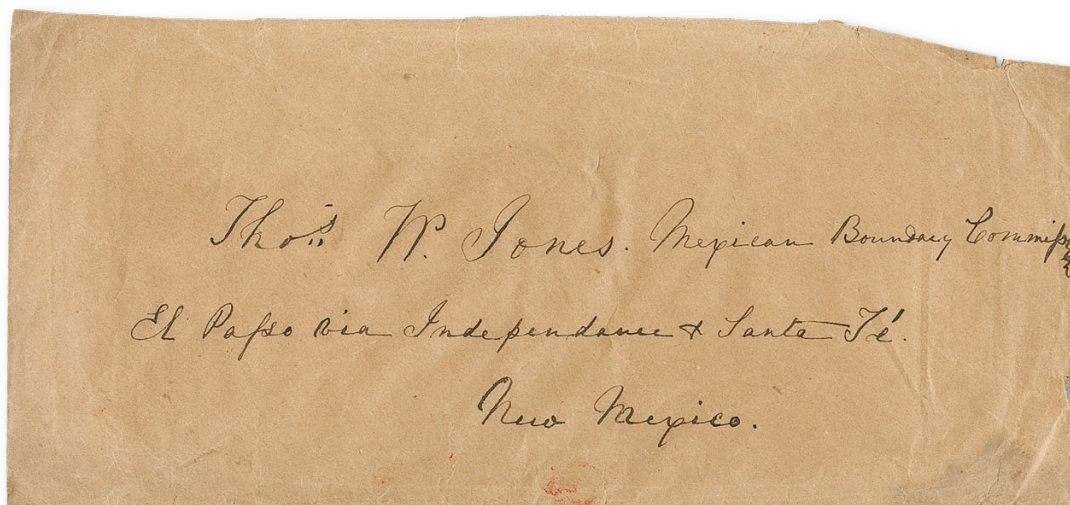 Thos. W. Jones. Mexican Boundary Commiss
El Passo via Independance & Santa Fé.
New Mexico.